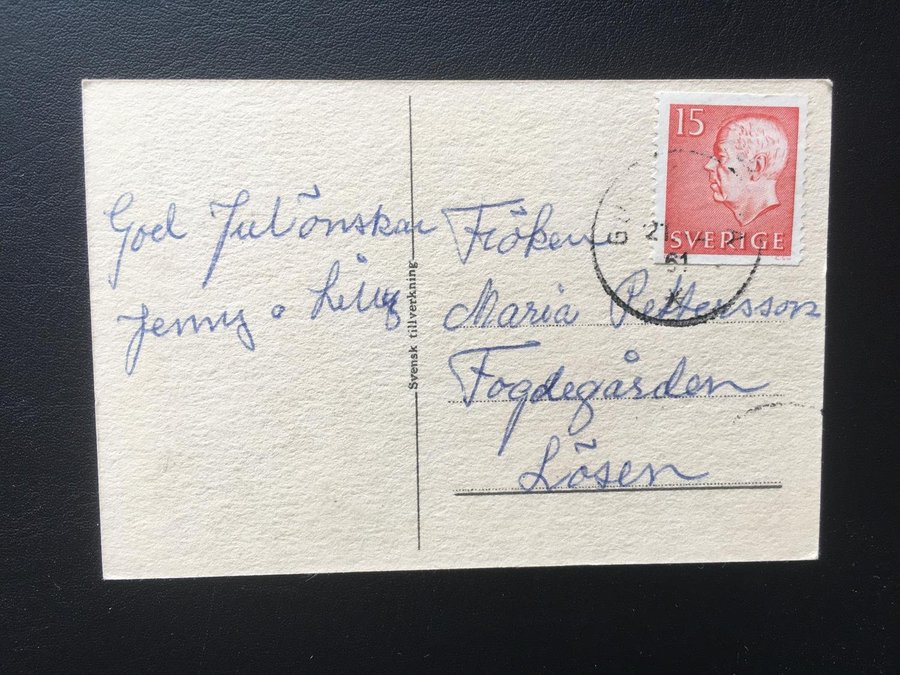 God Jul önskar
Jenny o Lilly
Svensk tillverkning
15
SVERIGE
21
61
Fröken
Maria Pettersson
Fogdegården
Lösen